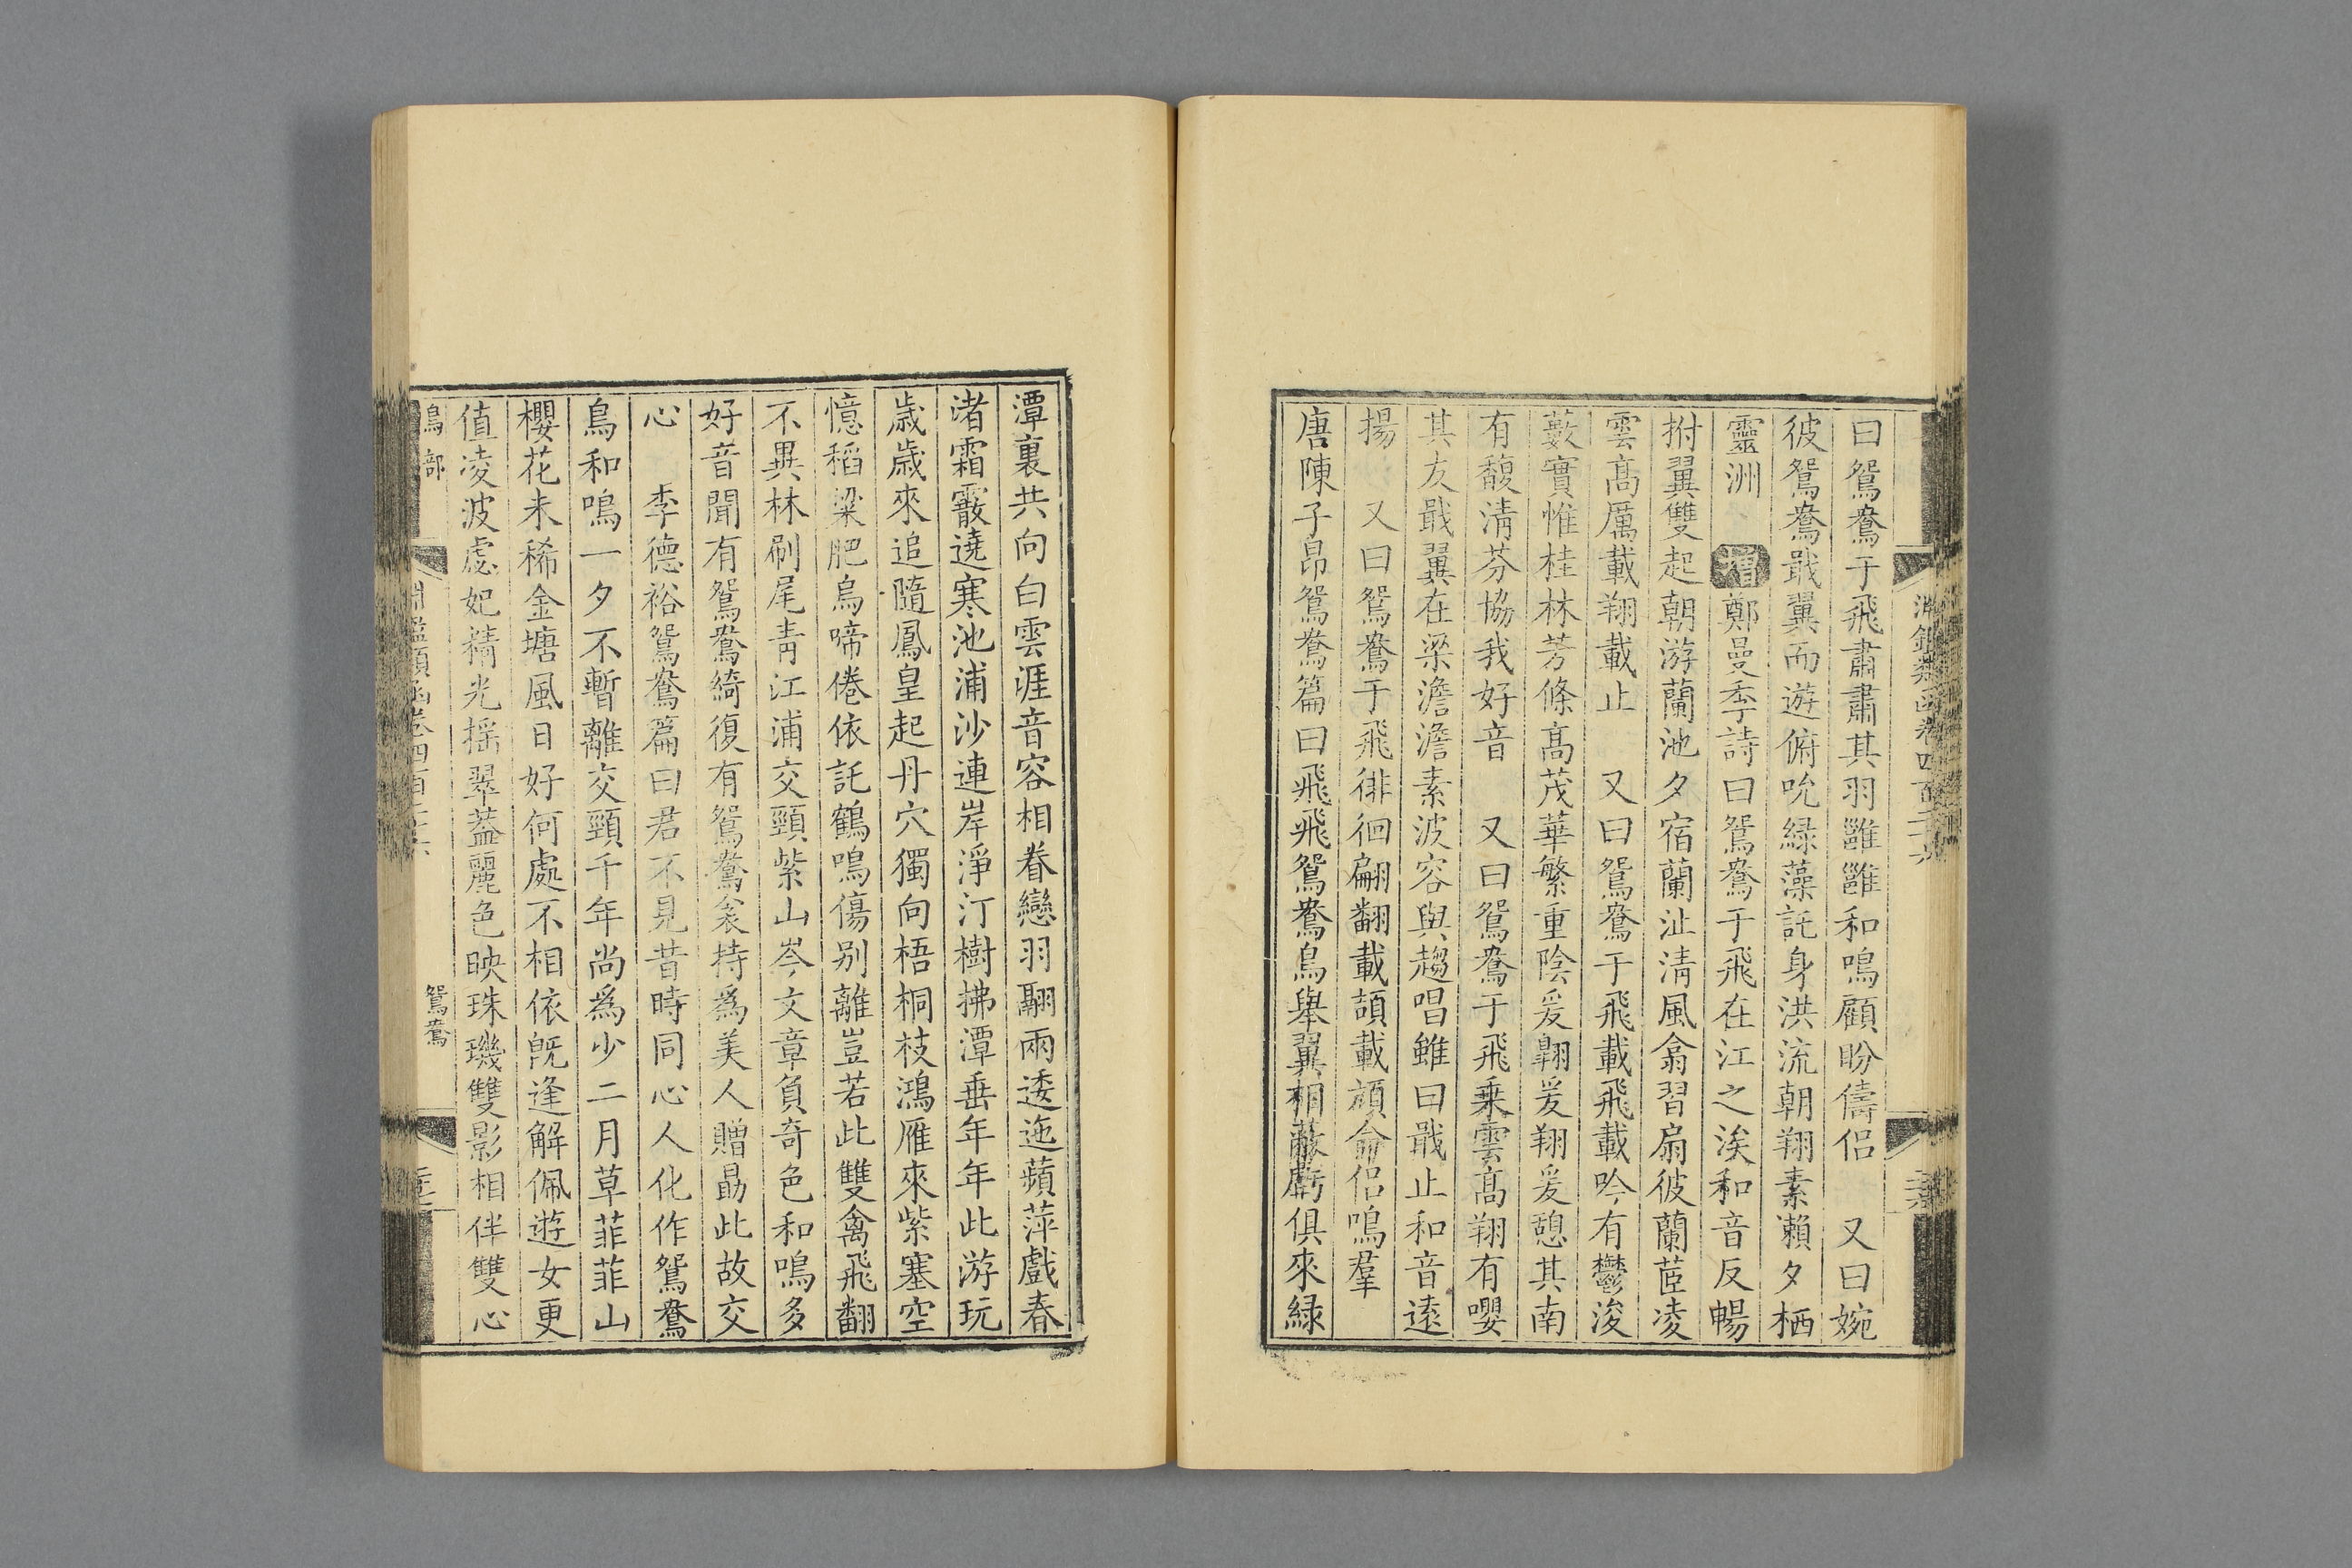 曰鴛鴦于飛肅肅其羽雝雝和鳴顧盼儔侣　又曰婉
彼鴛鴦戢翼而遊俯吮緑藻託身洪流朝翔素瀨夕栖
靈洲　增鄭曼季詩曰鴛鴦于飛在江之涘和音反暢
拊翼雙起朝游蘭池夕宿蘭沚清風翕習扇彼蘭茞凌
雲高厲載翔載止　又曰鴛鴦于飛載飛載吟有鬱浚
藪實惟桂林芳條高茂華繁重陰爰翱爰翔爰憩其南
有馥清芬協我好音　又曰鴛鴦于飛乘雲高翔有嚶
其友戢翼在梁澹澹素波容與趨唱雖曰戢止和音逺
揚　又曰鴛鴦于飛徘徊翩翻載頡載頏命侣鳴羣
唐陳子昂鴛鴦篇曰飛飛鴛鴦鳥舉翼相蔽虧俱來緑
潭裏共向白雲涯音容相眷戀羽翮兩逶迤蘋萍戲春
渚霜霰遶寒池浦沙連岸淨汀樹拂潭垂年年此游玩
歲歲來追隨鳳皇起丹穴獨向梧桐枝鴻雁來紫塞空
憶稻粱肥烏啼倦依託鶴鳴傷别離豈若此雙禽飛翻
不異林刷尾青江浦交頸紫山岑文章負奇色和鳴多
好音聞有鴛鴦綺復有鴛鴦衾持爲美人贈勗此故交
心　李德裕鴛鴦篇曰君不見昔時同心人化作鴛鴦
鳥和鳴一夕不暫離交頸千年尚爲少二月草菲菲山
櫻花未稀金塘風日好何處不相依旣逢解佩遊女更
值凌波處妃精光揺翠蓋麗色映珠璣雙影相伴雙心
鳥部
淵鑑類函卷四百二十六
鴛鴦